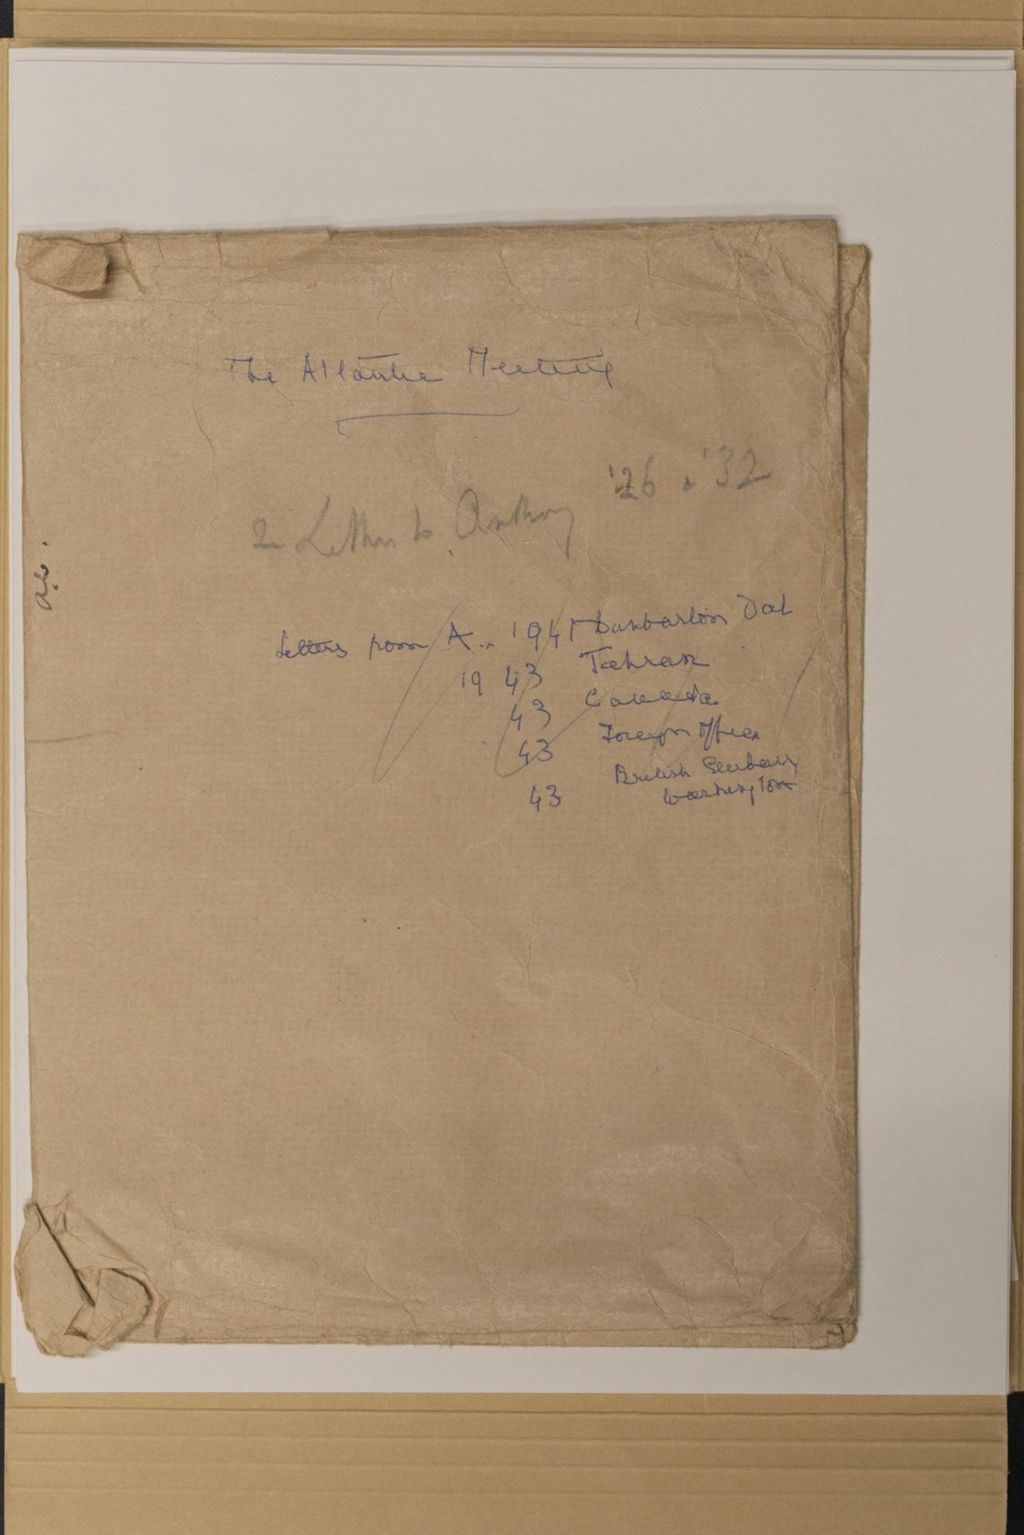 The Atlantic Meeting
2 Letters to Anthony '26 & '32
Letters from A.. 1941 Dunbarton
1943 Tehran
43 Canada
43 Foreign Office
43 British Embassy
Washington